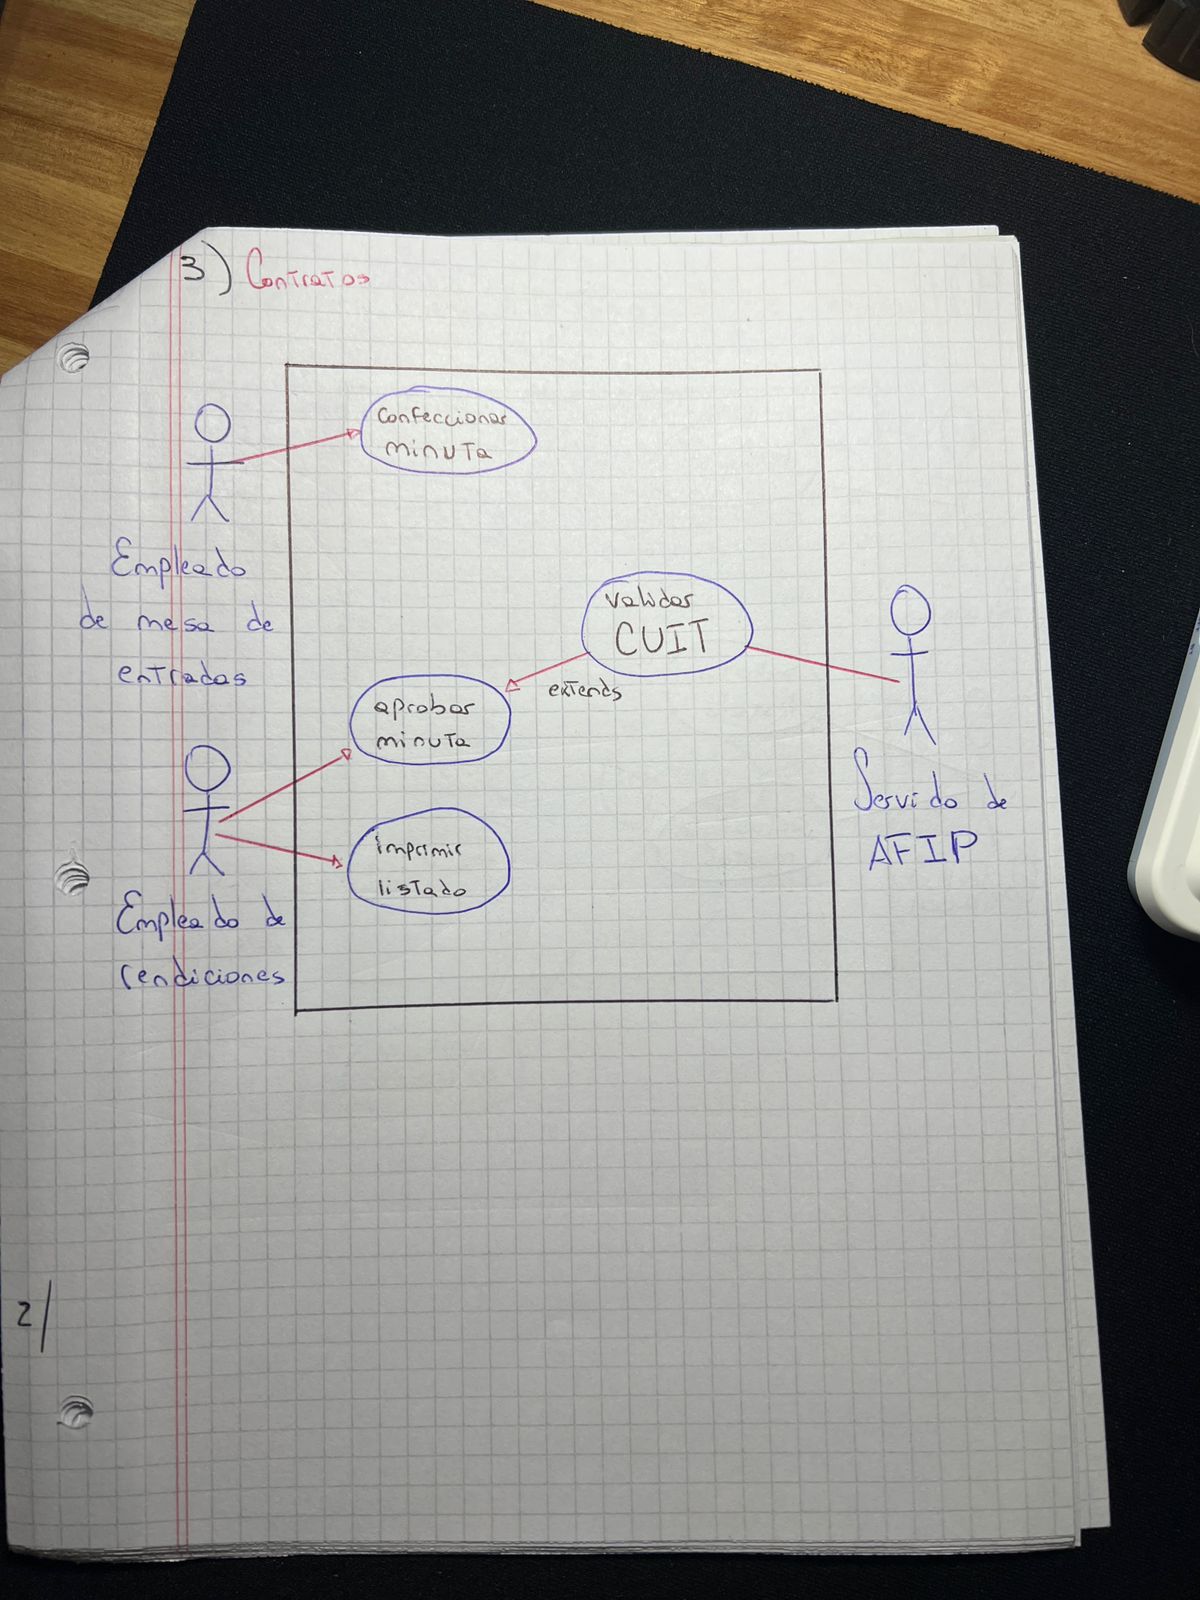 3) Contratos
confeccionar
minuta
Empleado
de mesa de
entradas
validar
CUIT
extends
aprobar
minuta
Servido de
AFIP
imprimir
listado
Empleado de
rendiciones
2/